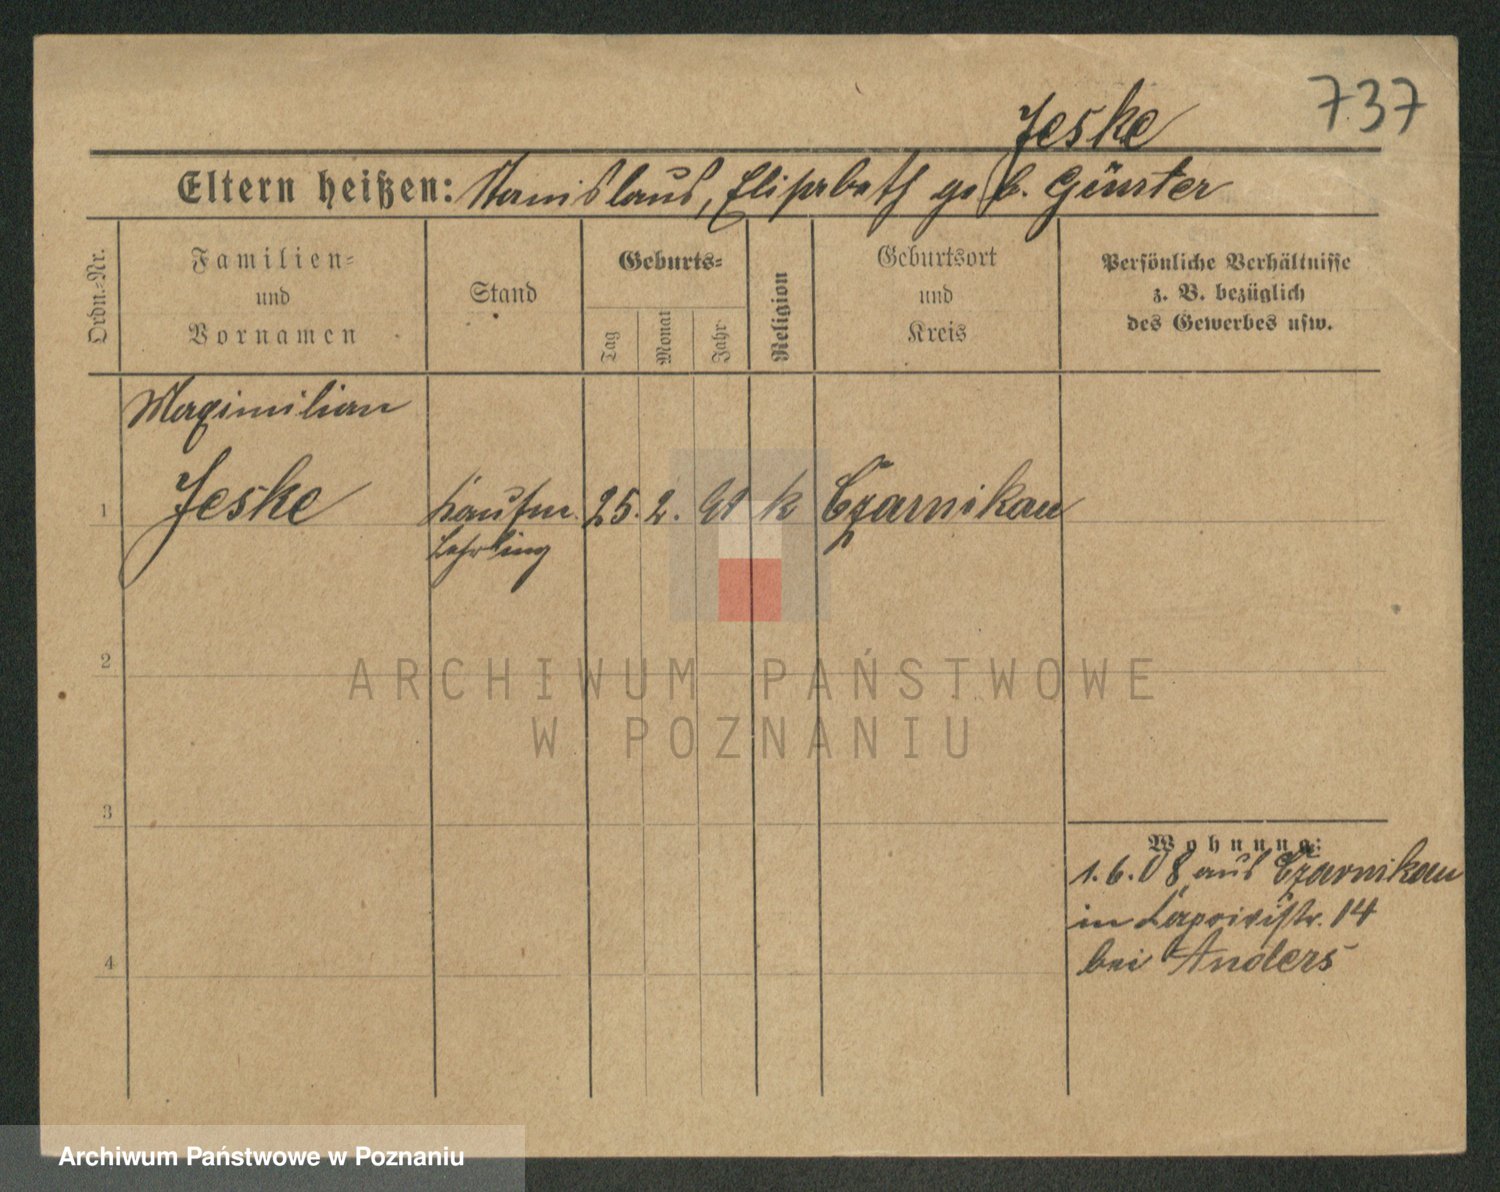 737
Jeske
Eltern heißen: Stanislaus, Elisabeth geb. Günter
Ordn.-Nr.
Familien-
und
Vornamen
Stand
Geburts-
Tag
Monat
Jahr
Religion
Geburtsort
und
Kreis
Persönliche Verhältnisse
z. B. bezüglich
des Gewerbes usw.
Maximilian
1 Jeske Kaufm. 25. 2. 91 k Czarnikau
Lehrling
2
ARCHIWUM PAŃSTWOWE
W POZNANIU
3
Wohnung:
1.6.08 aus Czarnikau
in 14
bei Anders
4
Archiwum Państwowe w Poznaniu